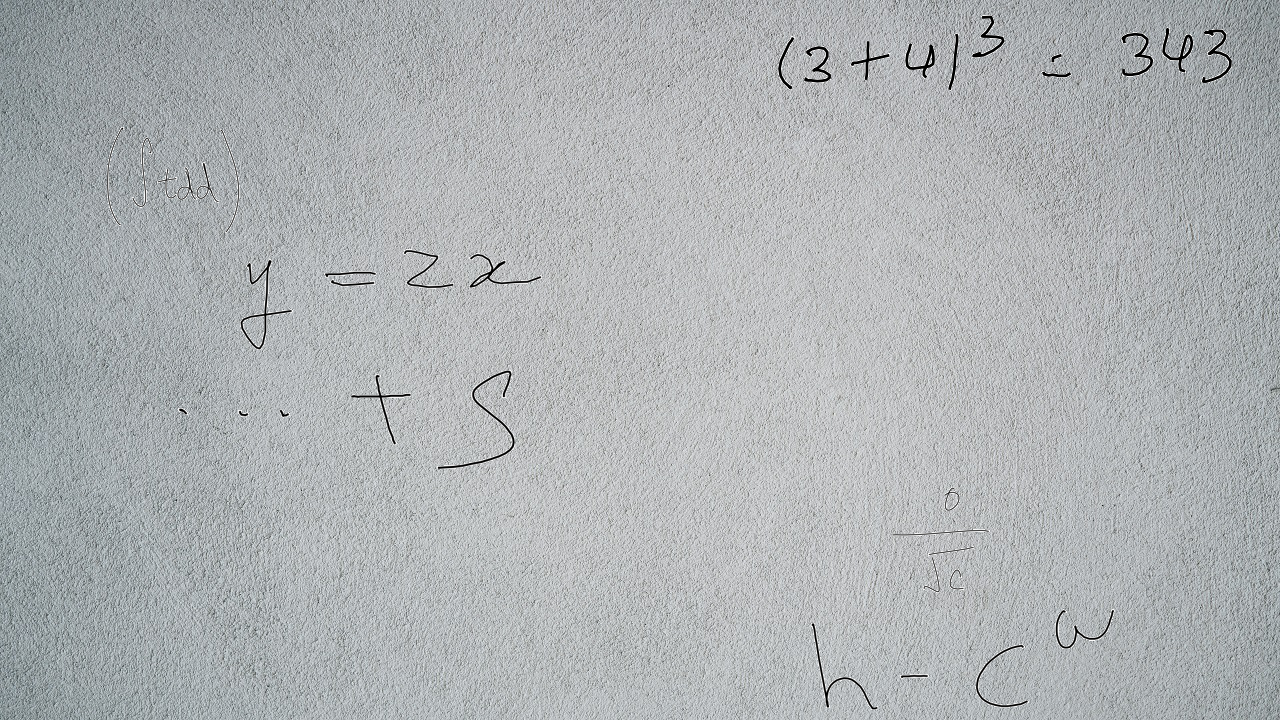 (3+4)³ = 343
(∫tdd)
y = 2x
... + S
0/√c
h - cᵚ